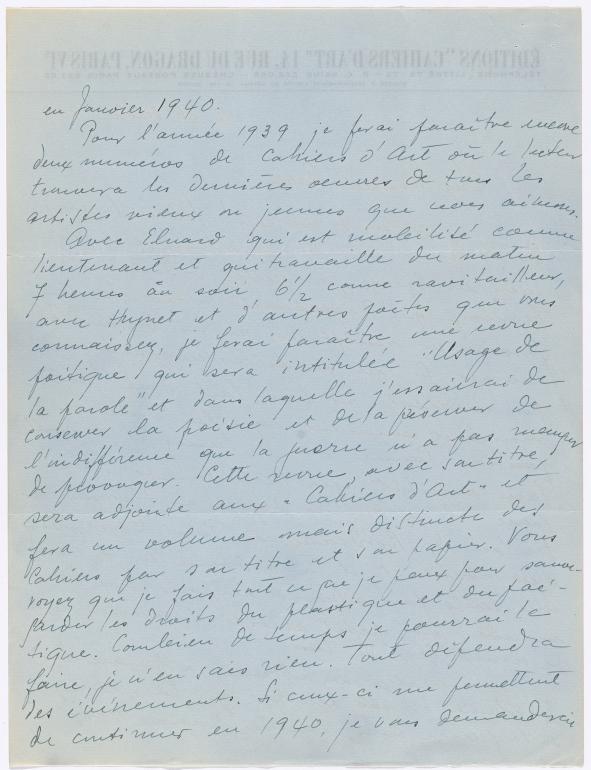 ÉDITIONS "CAHIERS D'ART" 14, RUE DU DRAGON, PARIS VIᵉ
en Janvier 1940.
Pour l'année 1939 je ferai paraître encore
deux numéros de Cahiers d'Art où le lecteur
trouvera les dernières oeuvres de tous les
artistes vieux ou jeunes que nous aimons.
Avec Eluard qui est mobilisé comme
lieutenant et qui travaille du matin
7 heures au soir 6½ comme ravitailleur,
avec Hugnet et d'autres poètes que vous
connaissez, je ferai paraître une revue
poétique qui sera intitulée "Usage de
la parole" et dans laquelle j'essaierai de
conserver la poésie et de la préserver de
l'indifférence que la guerre n'a pas manqué
de provoquer. Cette revue, avec son titre,
sera adjointe aux "Cahiers d'Art" et
fera un volume mais distincte des
Cahiers par son titre et son papier. Vous
voyez que je fais tout ce que je peux pour sauve-
garder les droits du plastique et du poé-
tique. Combien de temps je pourrai le
faire, je n'en sais rien. Tout dépendra
des événements. Si ceux-ci me permettent
de continuer en 1940, je vous demanderai